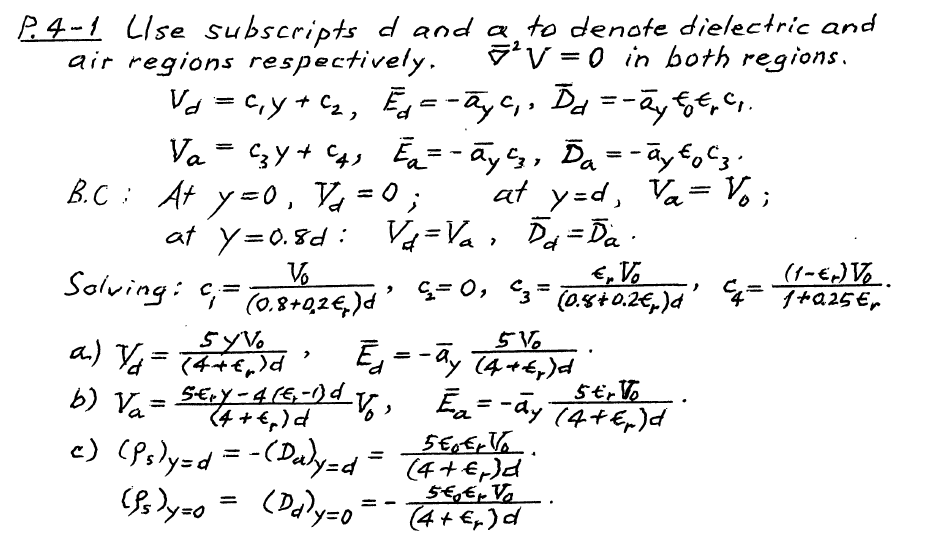 P.4-1 Use subscripts d and a to denote dielectric and
air regions respectively. ∇̄²V = 0 in both regions.
V_d = c₁y + c₂, Ē_d = -ā_y c₁, D̄_d = -ā_y ϵ₀ϵ_r c₁.
V_a = c₃y + c₄, Ē_a = -ā_y c₃, D̄_a = -ā_y ϵ₀c₃.
B.C: At y=0, V_d = 0; at y=d, V_a = V₀;
at y=0.8d: V_d = V_a, D̄_d = D̄_a.
Solving: c₁ = V₀/((0.8+0.2ϵ_r)d), c₂ = 0, c₃ = ϵ_r V₀/((0.8+0.2ϵ_r)d), c₄ = (1-ϵ_r)V₀/(1+0.25ϵ_r).
a.) V_d = 5yV₀/((4+ϵ_r)d), Ē_d = -ā_y 5V₀/((4+ϵ_r)d).
b) V_a = (5ϵ_r y-4(ϵ_r-1)d)/((4+ϵ_r)d) V₀, Ē_a = -ā_y 5ϵ_r V₀/((4+ϵ_r)d).
c) (ρ_s)_y=d = -(D_a)_y=d = 5ϵ₀ϵ_r V₀/((4+ϵ_r)d).
(ρ_s)_y=0 = (D_d)_y=0 = - 5ϵ₀ϵ_r V₀/((4+ϵ_r)d).